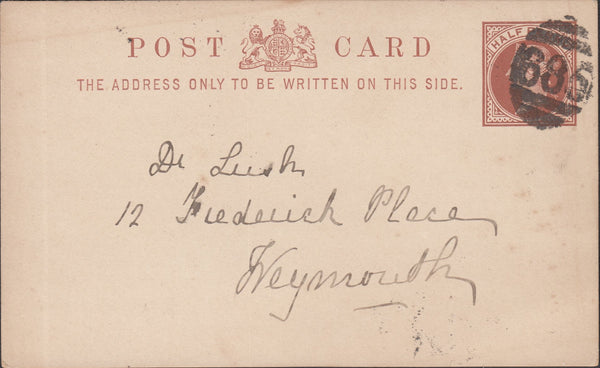 POST CARD
THE ADDRESS ONLY TO BE WRITTEN ON THIS SIDE.
HALF
Dr Lush
12 Frederick Place
Weymouth